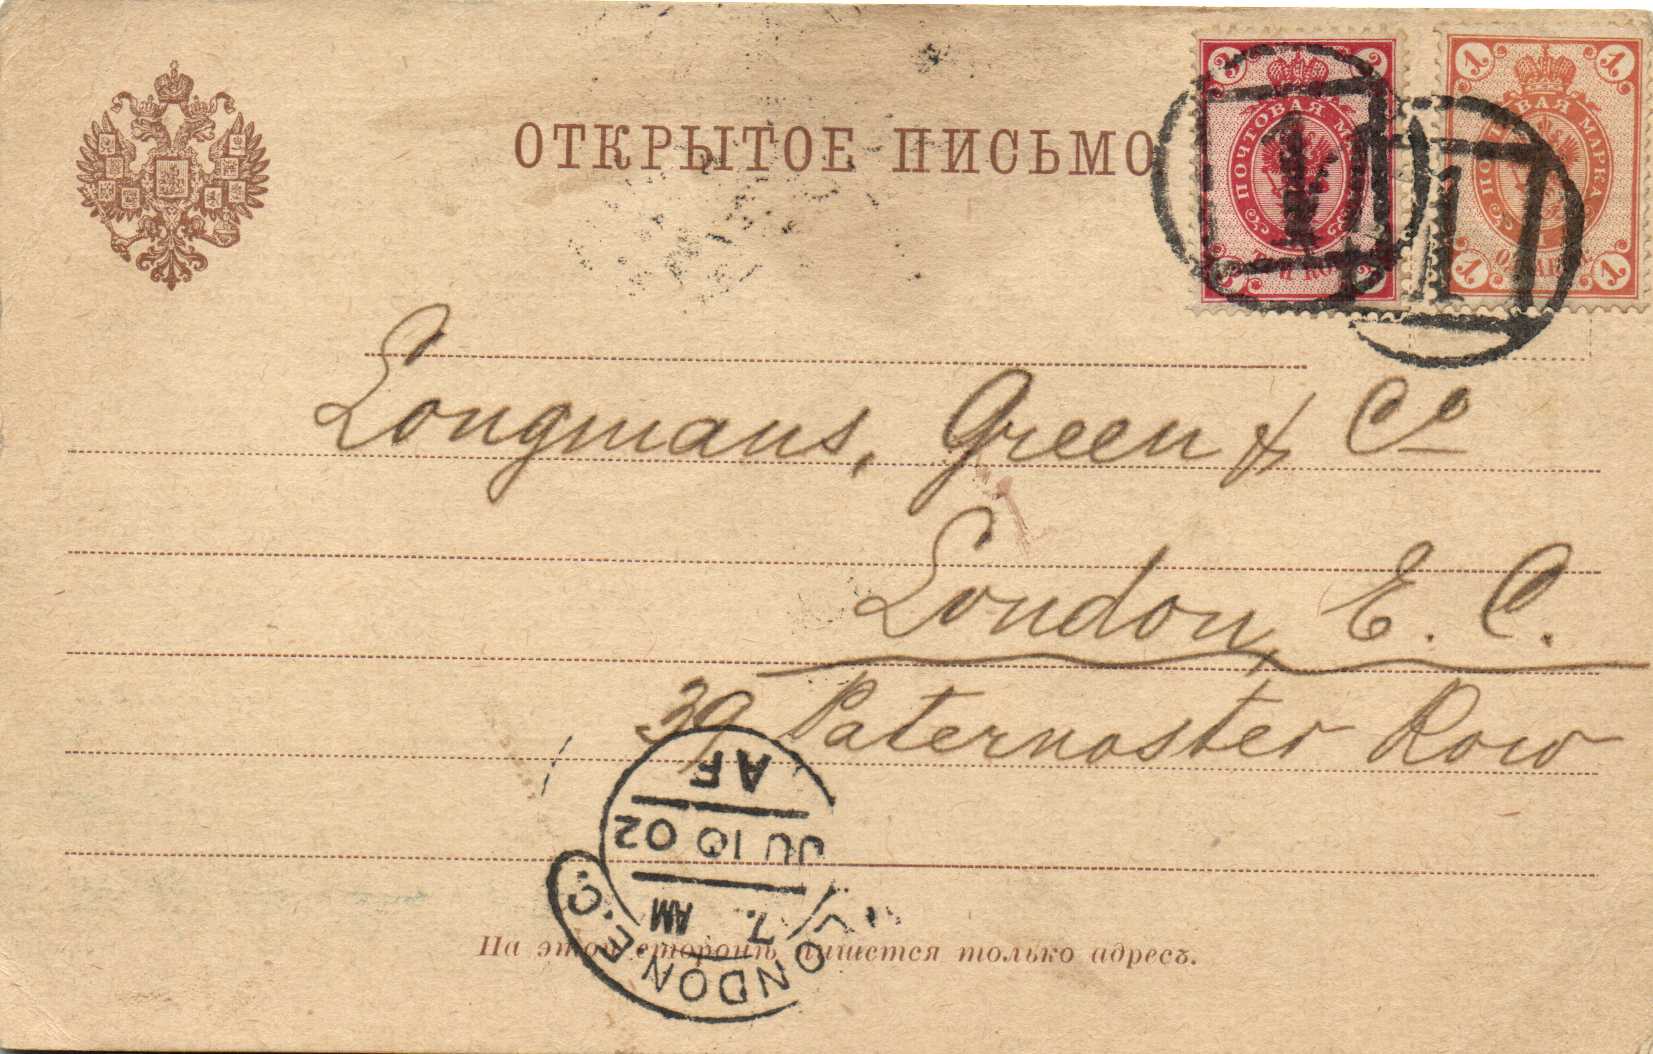 ОТКРЫТОЕ ПИСЬМО
3
ПОЧТОВАЯ МАРКА
1
1
ПОЧТОВАЯ МАРКА
1
1
1
1
Longmans, Green & Co
London, E. C.
39 Paternoster Row
LONDON E.C.
7. AM
JU 10 02
AF
На этой сторонѣ пишется только адресъ.